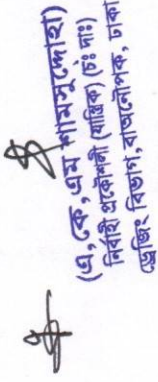 (এ, কে, এম শামসুদ্দোহা)
নির্বাহী প্রকৌশলী (যান্ত্রিক) (চঃ দাঃ)
ড্রেজিং বিভাগ, বাঅনৌপক, ঢাকা